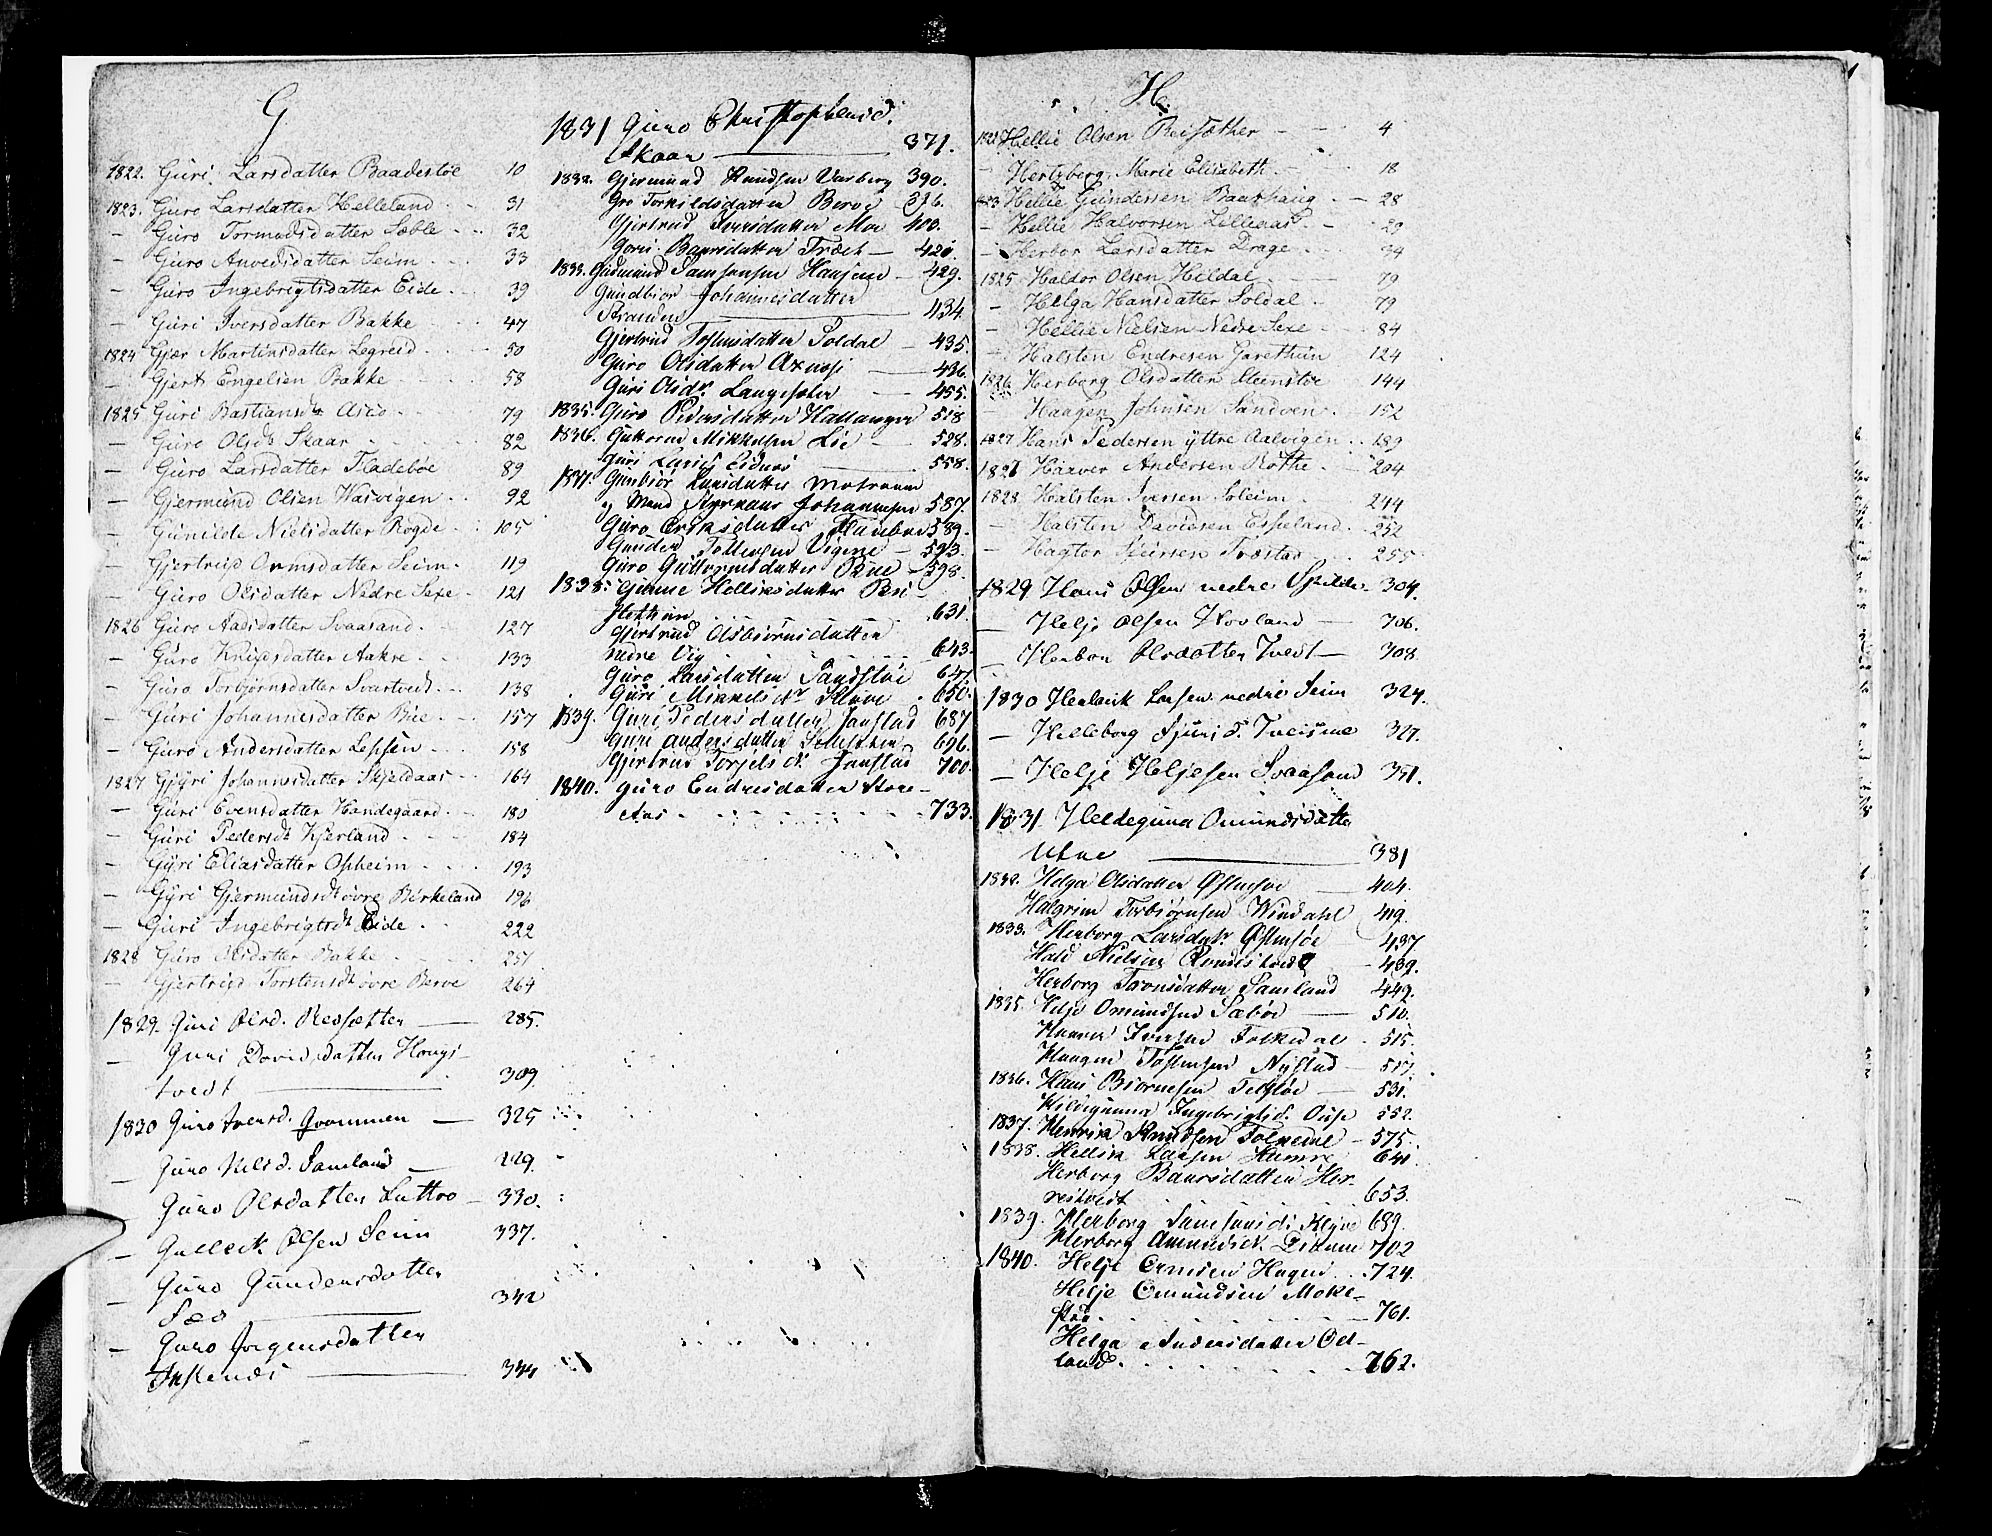 G.
1822. Guri Larsdatter Baadestøe 10
1823. Guro Larsdatter Helleland 31
- Guro Tormodsdatter Sæble 32
- Guro Anvedsdatter Seim 33
- Guro Ingebrigtsdatter Eide 39
- Guri Iversdatter Bakke 47
1824 Gjær Martinsdatter Legreid 50
- Gjert Engelsen Bakke 58
1825 Guri Bastiansdr 79
- Guro Olsdr Skaar 82
- Guro Larsdatter Fladebøe 89
- Gjermund Olsen Wasvigen 92
- Gunilde Nielsdatter Rogde 105
- Gjertrud Ormsdatter Seim 119
- Guro Olsdatter Nedre Sexe 121
1826 Guro Aadsdatter Svaasand 127
- Guro Knudsdatter Aakre 133
- Guro Torbjørnsdatter Svartvedt 138
- Guri Johannesdatter Bue 157
- Guro Andersdatter Lepsøen 158
1827 Gyri Johannisdatter Skjeldaas 164
- Guri Evensdatter Handegaard 180
- Guri Pedersdr Kjerland 184
- Gyri Eliasdatter Opheim 193
- Gyri Gjermundsdr øvre Birkeland 196
- Guri Ingebrigtsdr Eide 222
1828 Guro Olsdatter Bakke 251
- Gjertrud Torstensdr øvre Berve 264
1829. Guri Olsd. Resæter 285.
- Guri Davidsdatter Hougs-
tvedt 309.
1830 Guro Iversd. Qvammen 325
- Guro Nilsd. Samland 229.
- Guro Olsdatter Luttro 330.
- Gulleck Olsen Seim 337.
- Guro Gundersdatter
Sæd 342
- Guro Jørgensdatter
344
1831 Guro Christophersd.
Skaar 371.
1832. Gjermund Knudsen Varberg 390.
Gro Torkildsdatter Berve 396.
Gjertrud Iversdatter Moe 400.
Goroi Baarsdatter Træet 421.
1833. Gudmund Samsonsen Haujene 429.
Gundbior Johannesdatter
Stranden 434.
Gjertrud Tostensdatter Soldal 435.
Guro Olsdatter Axnes 436.
Guri Olsdr. Langesæter 455.
1835. Guro Pedersdatter Hallanger 518
1836. Guttorm Mikkelsen Lie 528.
Guri Larsd Eidnes 558.
1837. Gunbiør Larsdatter Mostraum
og Mand Styrkaar Johannesen 587.
Guro Eriksdatter Fladebøe 589.
Gunder Tostensen Vigene 593.
Guro Guttormsdatter Bue 598.
1838. Gunne Hellisdatter Rei-
631.
Gjertrud Asbiørnsdatter
nedre Vig 643.
Guro Larsdatter Sandstøe 647.
Guri Mikkelsdr Kluve 650.
1839. Guri Pedersdatter Janstad 687
Guri Andersdatter 696.
Gjertrud Torjelsdr. Janstad 700.
1840. Guro Endresdatter Store-
Aas 733.
H.
1822 Hellie Olsen Reisæther 4
- Hertzberg, Marie Elisabeth 18
1823 Hellie Gundersen Baashaug 28
- Hellie Halvorsen Lilleaas 29
- Herbor Larsdatter Drage 34
1825 Haldor Olsen Hildal 79
- Helga Hansdatter Soldal 79
- Hellie Nielsen Nedre Sexe 84
- Halsten Endresen Garethun 124
1826 Herborg Olsdatter Steenstøe 144
- Haagen Johnsen Sandven 152
1827 Hans Pedersen yttre Aalvigen 189
1827 Haaver Andersen Røthe 204
1828. Halsten Iversen Soleim 244
- Halsten Davidsen Espeland 252
- Hagtor Sjursen Træstad 255
1829 Hans Olsen nedre Spilde 304.
- Helje Olsen Hovland 306.
- Herbor Olsdatter Tvedt 308.
1830 Henderik Larsen nedre Seim 324.
- Helleborg Sjursd. Tveisme 327.
- Helje Heljesen Svaasand 351.
1831. Heldeguna Omundsdatter
Utne 381
1832. Helga Olsdatter Østensøe 404.
Halgrim Torbiørnsen Windahl 419.
1833. Herborg Larsdatr Østensøe 437
Hald Nielsen 439.
Herborg Tronsdatter Samland 449.
1835. Helje Omundsen Sæbøe 510.
Haaver Iversen Folkedal 515.
Haagen Tostensen Nystad 517.
1836. Hans Biørnesen Teigstøe 531.
Hildegunna Ingebrigtsd. Ouse 552.
1837. Henrik Knudsen Tolneme 575.
1838. Hellik Larsen Hamre 641.
Herborg Baarsdatter Her-
restvedt 653.
1839. Herborg Samsonsdr Klyve 689.
Herborg Amundsdr. Eidnem 702
1840. Helje Ormsen Hagen 724.
Helje Omundsen Moke-
stad 761.
Helga Andersdatter Od-
land 762.